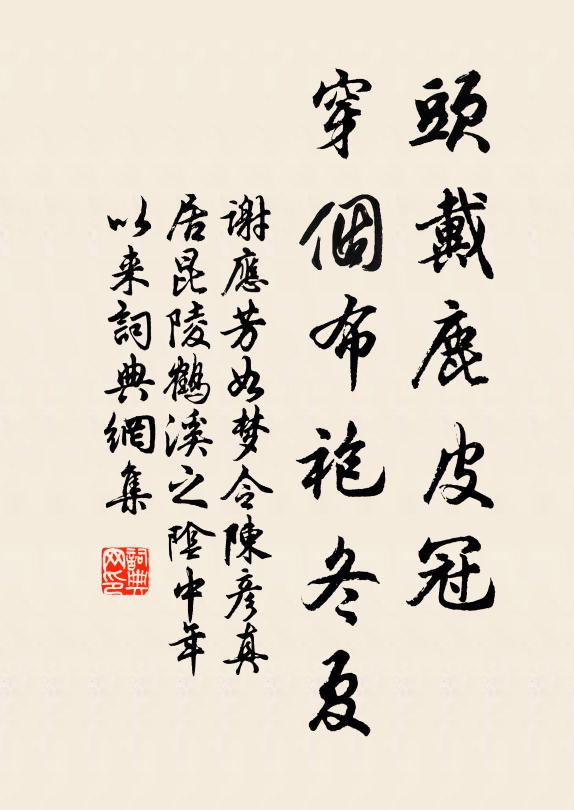 頭戴鹿皮冠
穿個布袍冬夏
謝應芳如梦令陳彥真
居昆陵鶴溪之陰中年
以来詞典網集
詞典网印